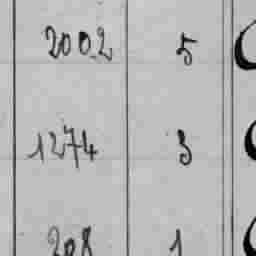 2002 5
1274 3
208 1